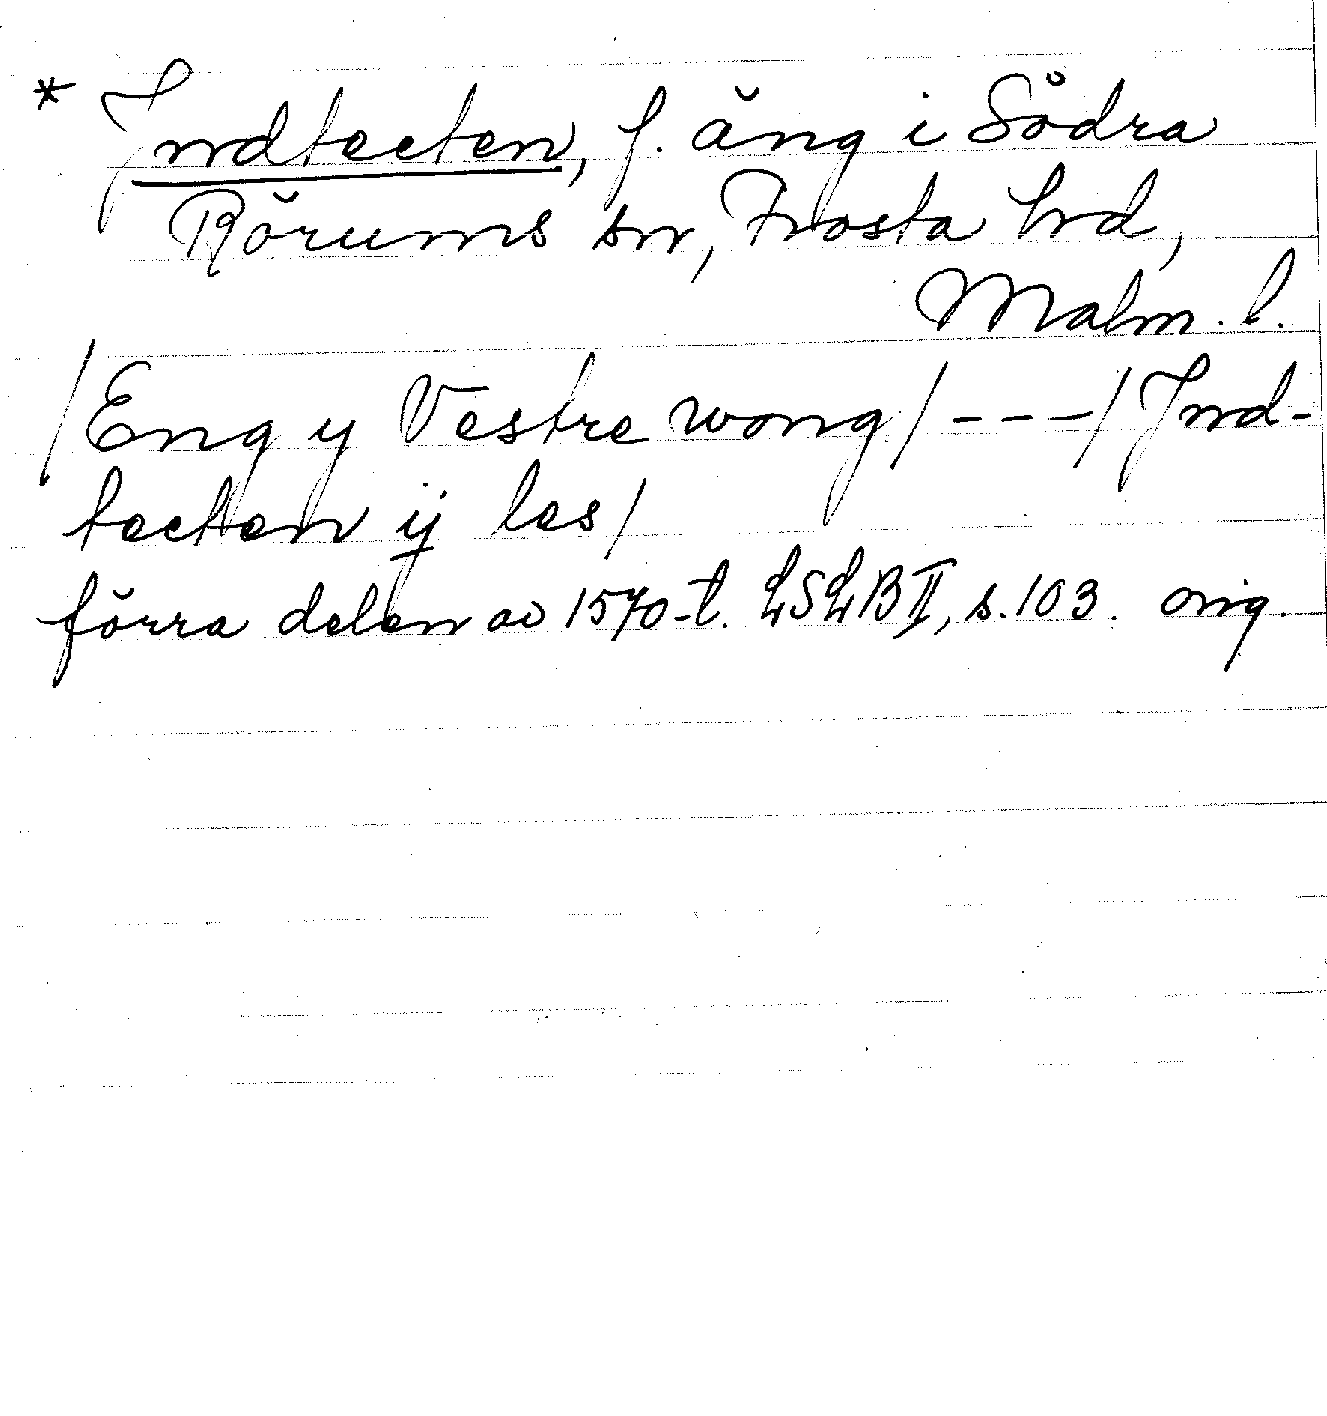 * Jndtecten, f. äng i Södra
Rörums sn, Frosta hd,
Malm. l.
/Eng y Vestre wong/ - - - / Jnd-
tecten ij les/
förra delen av 1570-t. LSLB II, s. 103. orig.